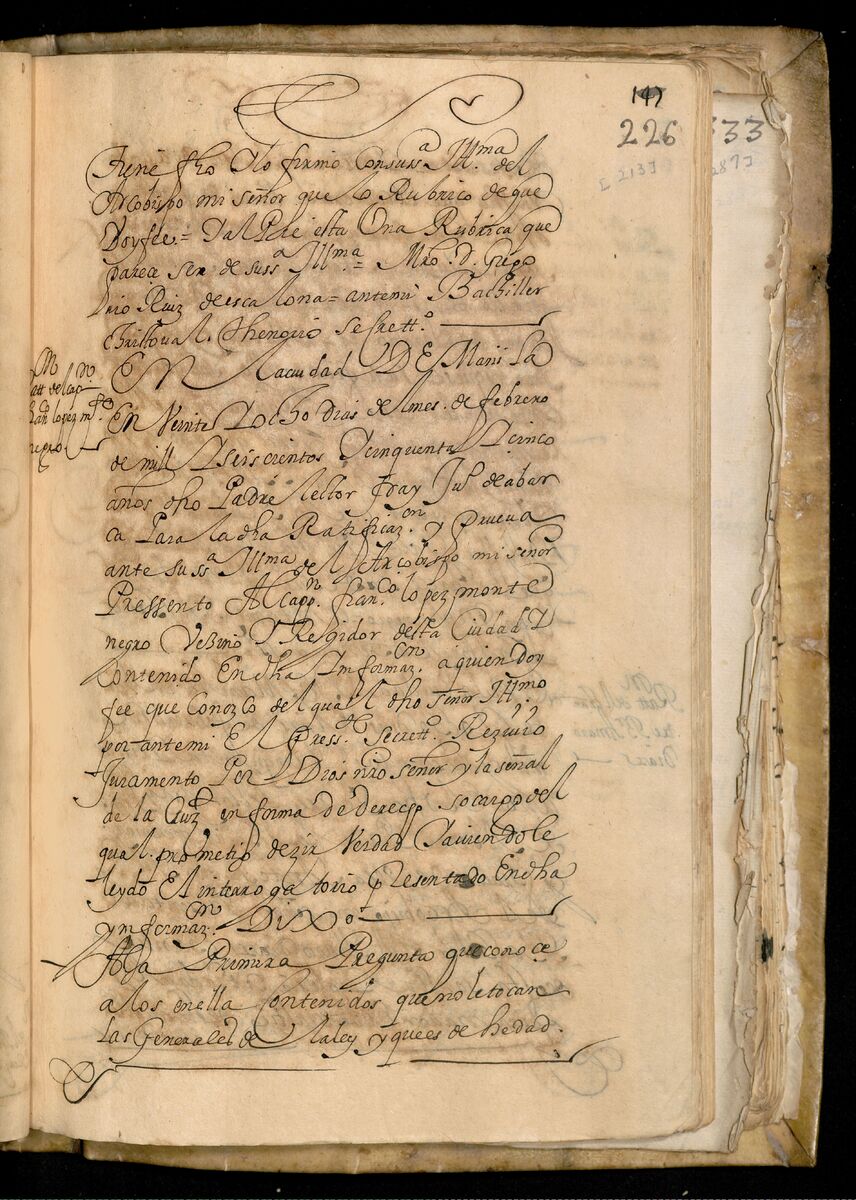 147
226
333
2137
2877
tiene fho Y lo firmo Con sussa. Illma del
Arcobispo mi señor que lo Rubrico de que
Doy fee = Y al Pie esta Una Rubrica que
pareçe ser de sussa Illma = Mro. D. Grego
rio Ruiz de escalona = ante mi Bachiller
christoual. secretto.
Ratt del cap
franco lopez m
negro
En la ciudad DE Manila
En Veinte Y ocho Dias del mes. de febrero
de mill Y seiscientos Y cinquenta Y cinco
años dho Padre lector fray Ju. de abar
ca Para la dha Ratificazon. y prueua
ante su ssa Illma del Arcobispo mi señor
Pressento Al cappn. franco lopez monte
negro Vezino Y Regidor desta Ciudad Y
Contenido En dha Informazon. a quien doy
fee que Conozco del qual dho señor Illmo
por ante mi El presste. secretto. Reziuio
Juramento Por Dios nro señor y la señal
de la Cruz en forma de derecho so cargo del
qual. prometio dezir Verdad Y auiendole
leydo El interrogatorio presentado En dha
ynformazon. DiXo
A la Primera Pregunta que conoçe
a los en ella Contenidos que no le tocan
las Generales de la ley y que es de hedad.